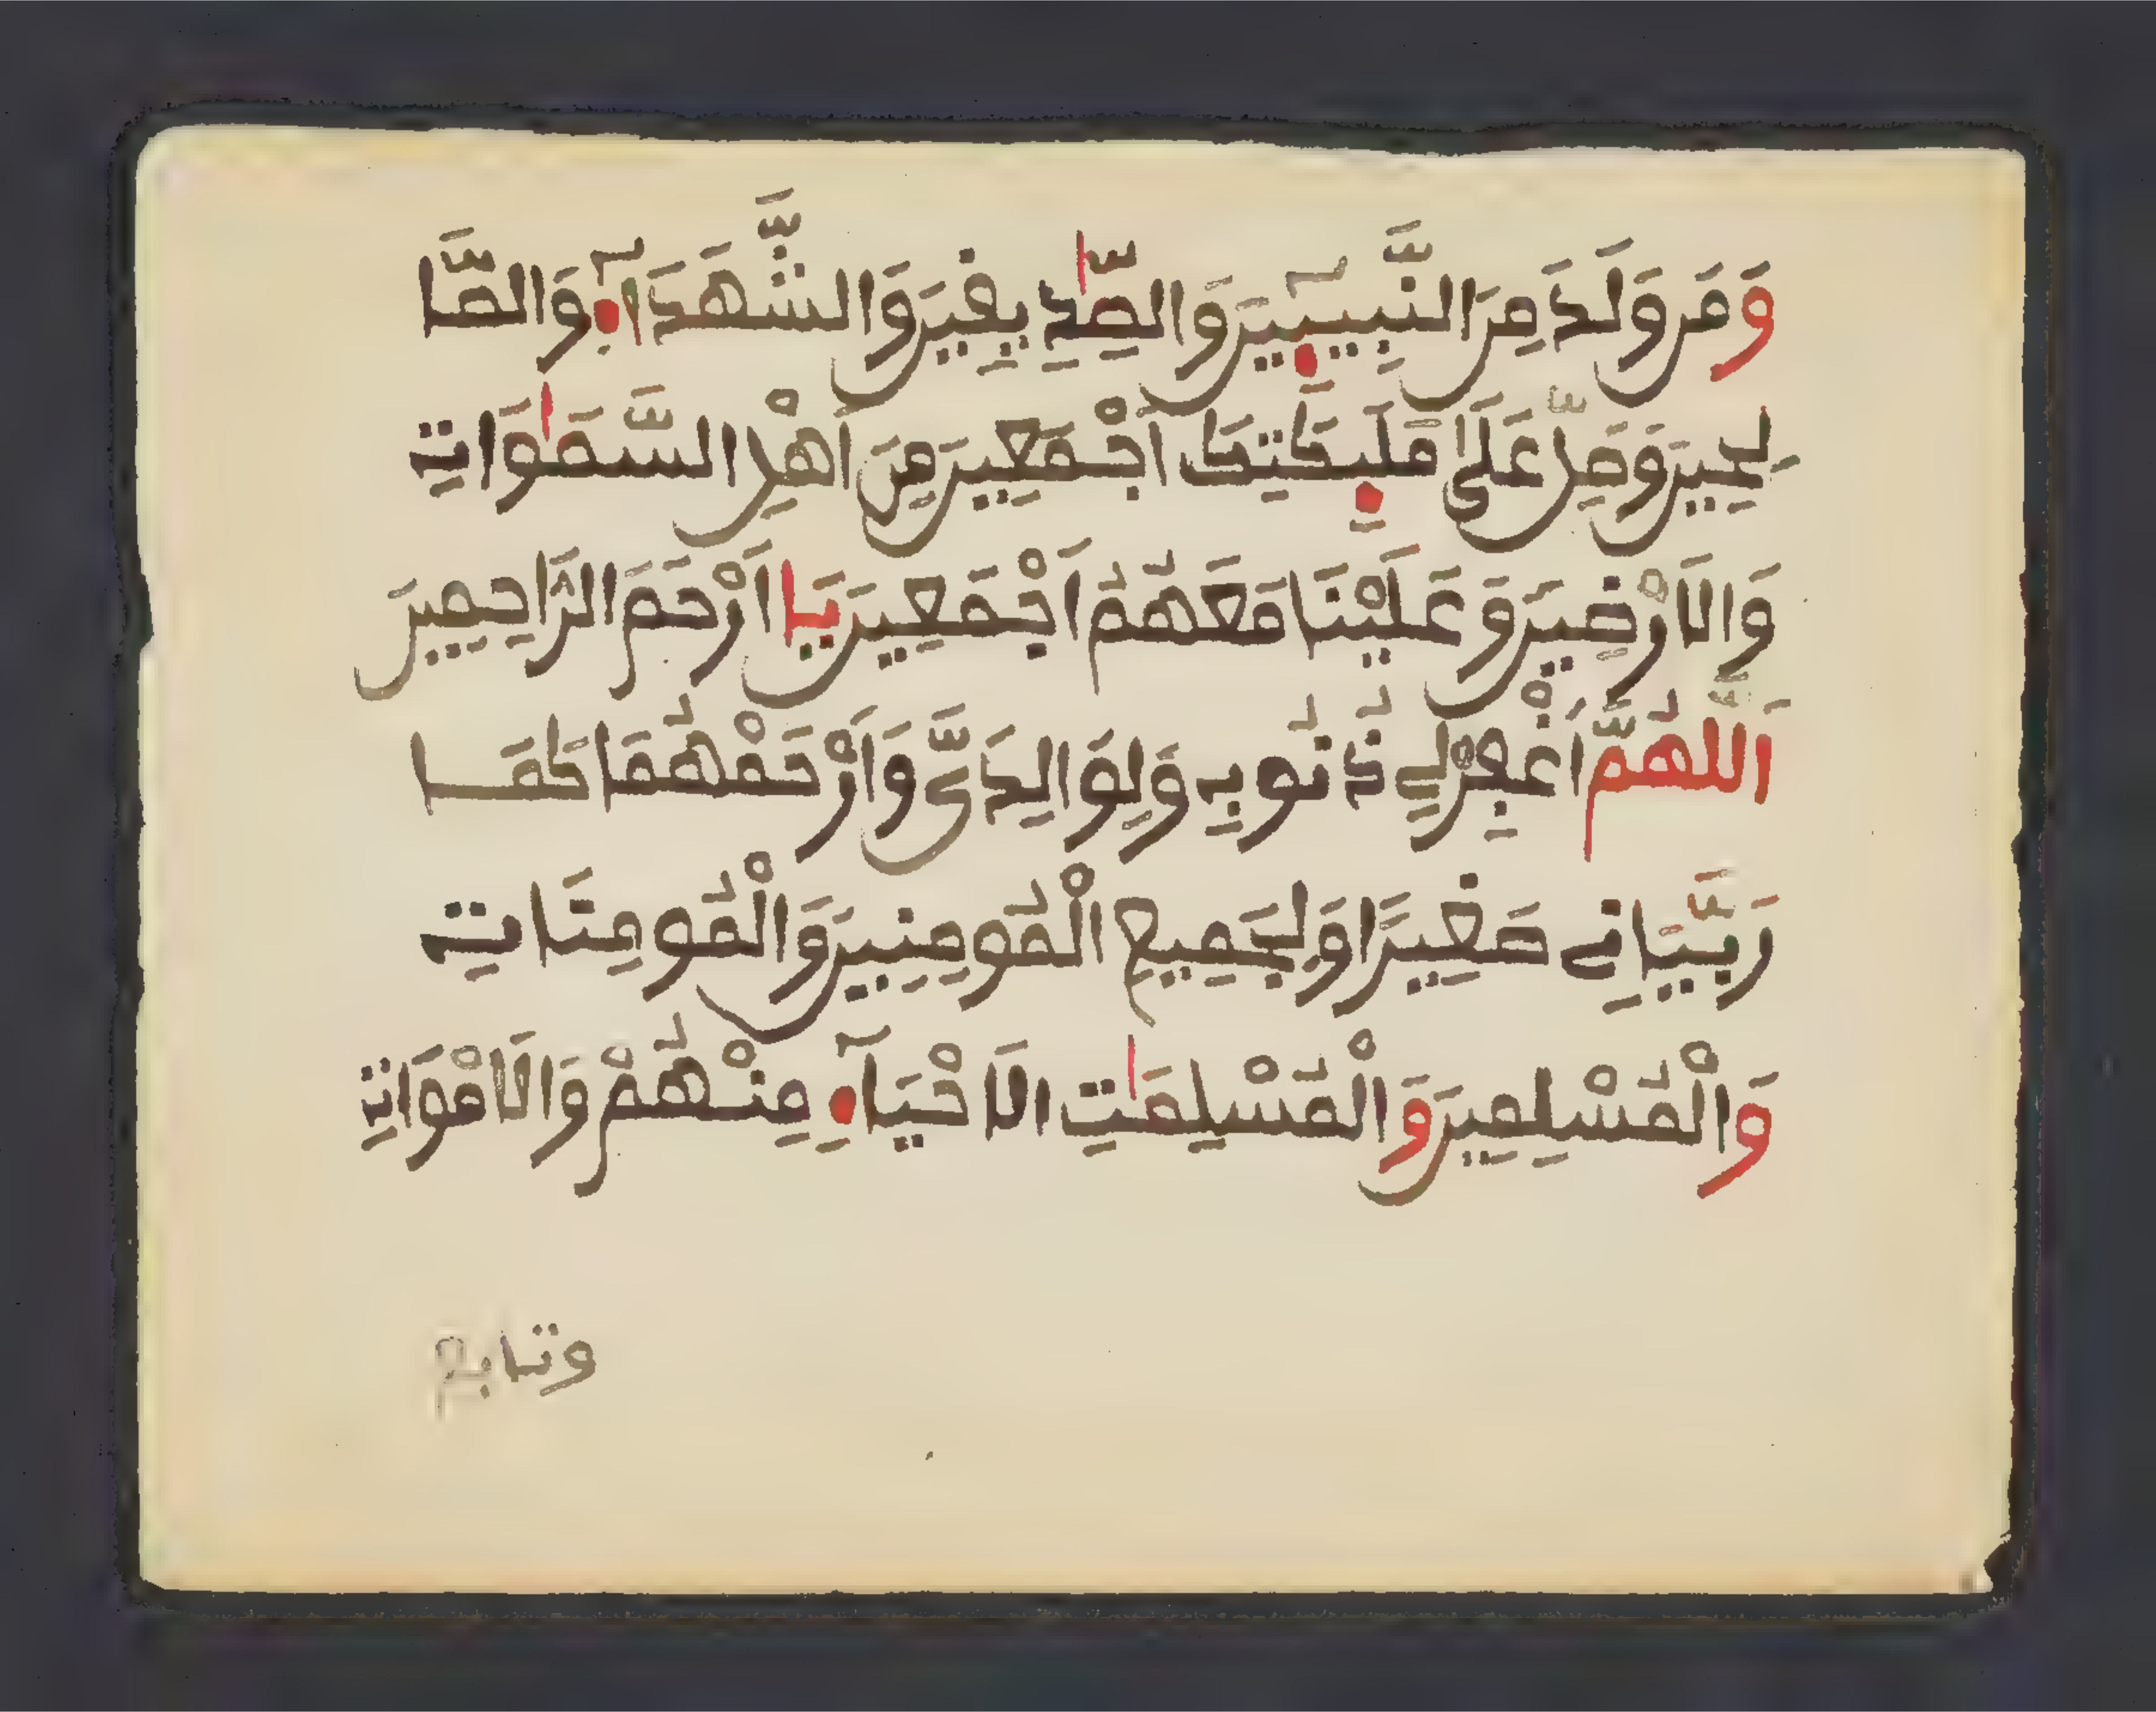 وَمَن وَلَدَ مِنَ النَّبِيـِٕۧينَ وَالصِّدِّيقِينَ وَالشُّهَدَآءِ وَالصَّا
لِحِينَ وَصَلِّ عَلَىٰ مَلَـٰٓئِكَتِكَ أَجْمَعِينَ مِنَ أَهْلِ السَّمَٰوَاتِ
وَالَارْضِينَ وَعَلَيْنَا مَعَهُمُ أَجْمَعِينَ يَا أَرْحَمَ الرَّاحِمِينَ
اَللَّهُمَّ اَغْفِرْلِي ذُنُوبِي وَلِوَالِدَيَّ وَاَرْحَمْهُمَا كَمَا
رَبَّيَانِي صَغِيرًا وَلِجَمِيعِ الْمُومِنِينَ وَالْمُومِنَاتِ
وَالْمُسْلِمِينَ وَالْمُسْلِمَٰتِ الَاحْيَآءِ مِنْهُمْ وَالَامْوَاتِ
وتابع